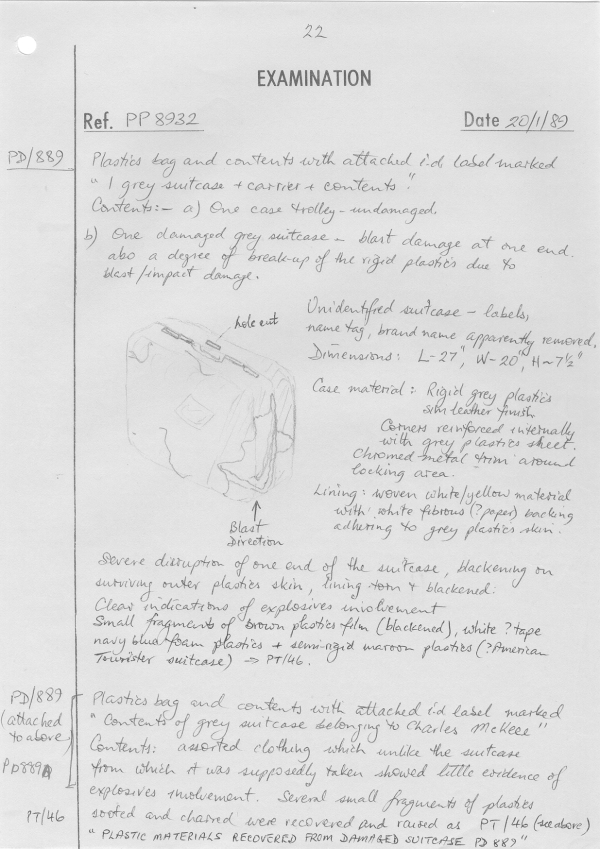 22
EXAMINATION
Ref. PP 8932 Date 20/1/89
PD/889 Plastics bag and contents with attached i.d. label marked
" 1 grey suitcase + carrier + contents".
Contents:- a) One case trolley - undamaged.
b) One damaged grey suitcase - blast damage at one end.
also a degree of break-up of the rigid plastics due to
blast/impact damage.
hole cut
Unidentified suitcase - labels,
name tag, brand name apparently removed.
Dimensions: L-27", W-20", H~7½"
Case material: Rigid grey plastics
sim leather finish.
Corners reinforced internally
with grey plastics sheet.
Chromed metal trim around
locking area.
Lining: woven white/yellow material
with white fibrous (?paper) backing
adhering to grey plastics skin.
Blast
Direction
Severe disruption of one end of the suitcase, blackening on
surviving outer plastics skin, lining torn + blackened.
Clear indications of explosives involvement
Small fragments of brown plastics film (blackened), white ?tape
navy blue foam plastics + semi-rigid maroon plastics (?American
Tourister suitcase) → PT/46.
PD/889 Plastics bag and contents with attached i.d. label marked
(attached " Contents of grey suitcase belonging to Charles McKee"
to above) Contents: assorted clothing which unlike the suitcase
PD889A from which it was supposedly taken showed little evidence of
explosives involvement. Several small fragments of plastics
PT/46 sooted and charred were recovered and raised as PT/46 (see above)
" PLASTIC MATERIALS RECOVERED FROM DAMAGED SUITCASE PD 889"